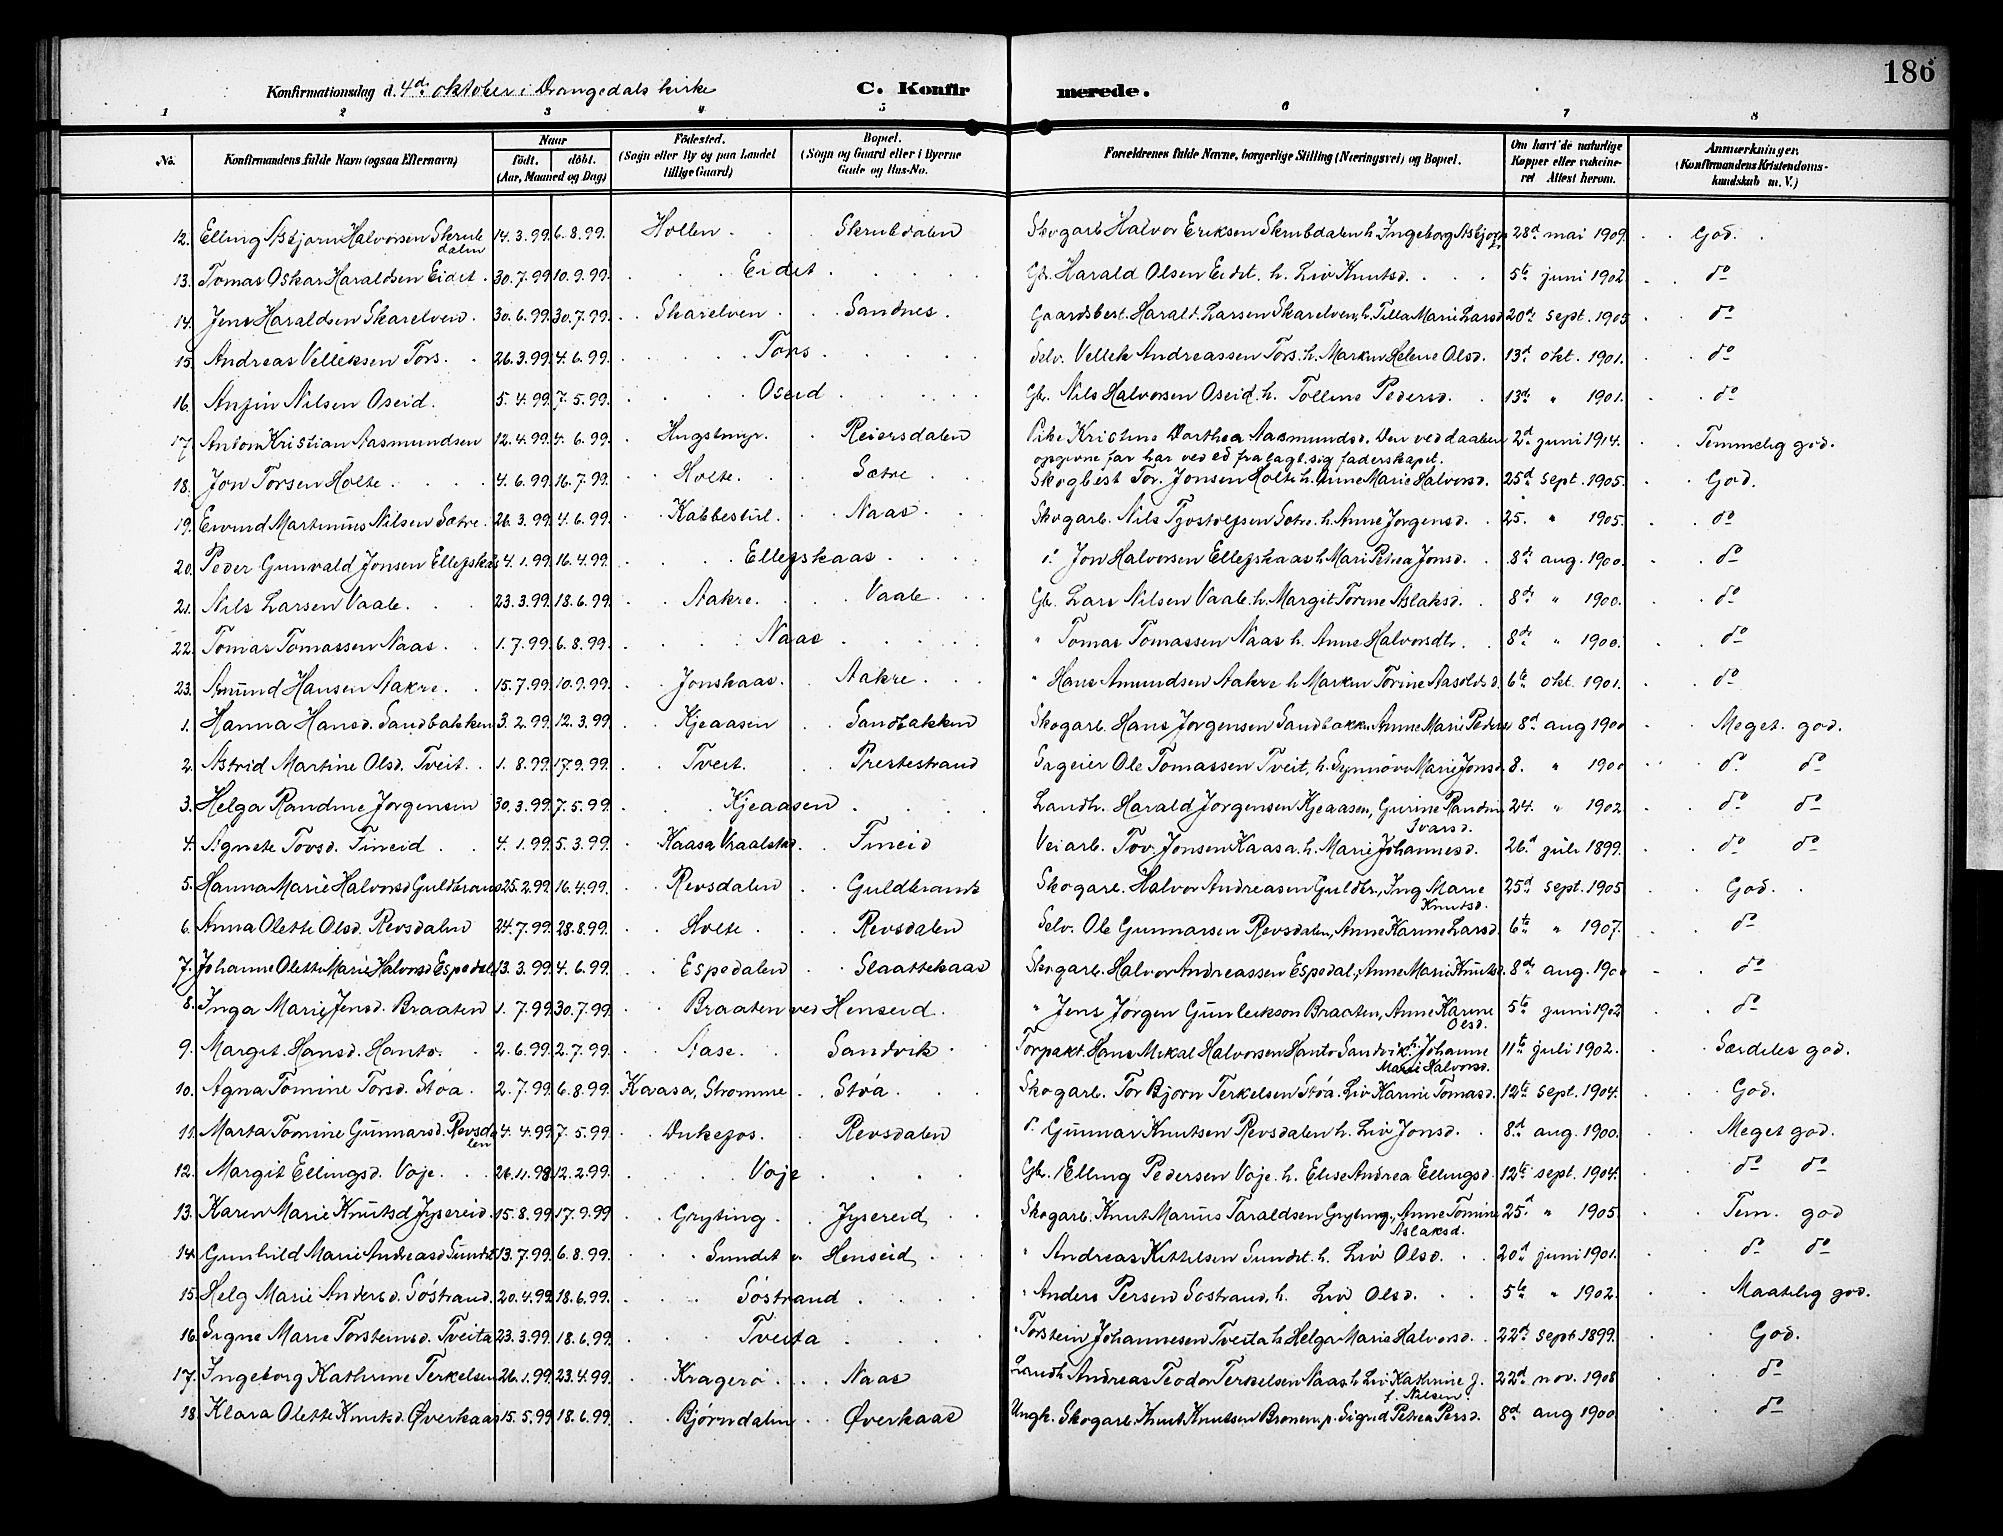 186
Konfirmationsdag d. 4de oktober i Drangedals kirke C. Konfirmerede.
1 2 3 4 5 6 7 8
No. Konfirmandens fulde Navn (ogsaa Efternavn) Naar födt. döbt. (Aar, Maaned og Dag) Födested. (Sogn eller By og paa Landet tillige Gaard) Bopæl. (Sogn og Gaard eller i Byerne Gade og Hus-No. Forældrenes fulde Navne, borgerlige Stilling (Næringsvei) og Bopæl. Om havt de naturlige Kopper eller vaccineret Attest herom. Anmærkninger. (Konfirmandens Kristendomskundskab m. V.)
12. Elling Asbjorn Halvorsen Skrubdalen 14.3.99. 6.8.99. Hollen Skrubdalen Skogarb. Halvor Eriksen Skrubdalen h. Ingeborg 28de mai 1909. God.
13. Tomas Oskar Haraldsen Eidet. 30.7.99. 10.9.99. Eidet Gb. Harald Olsen Eidet. h. Liv Knutsd. 5te juni 1902. do
14. Jens Haraldsen Skarelven. 30.6.99. 30.7.99. Skarelven Sandnes. Gaardsbest. Harald Larsen Skarelven, h. Tilla Marie Larsd 20de sept. 1905 do
15. Andreas Velleksen Tors. 26.3.99. 4.6.99. Tors Selv. Vellek Andreassen Tors. h. Maren Helene Olsd. 13de okt. 1901. do
16. Nilsen Oseid. 5.4.99. 7.5.99. Oseid Gb. Nils Halvorsen Oseid. h. Tolline Pedersd. 13de " 1901. do
17. Anton Kristian Aasmundsen 12.4.99. 4.6.99. Hugstmyr. Reiersdalen Pike Kristine Dorthea Aasmundsd. Den ved daaben 2de juni 1914. Temmelig god.
opgivne far har ved ed fralagt sig faderskapet.
18. Jon Torsen Holte 4.6.99. 16.7.99. Holte. Sætre Skogbest Tor. Jonsen Holte h. Anne Marie Halvorsd. 25de sept. 1905. God.
19. Eivind Martinius Nilsen Sætre. 26.3.99. 4.6.99. Kabbestul. Naas Skogarb. Nils Tjostolfsen Sætre. h. Anne Jørgensd. 25. " 1905. do
20. Peder Gunvald Jonsen Ellefskås 4.1.99. 16.4.99. Ellefskaas Jon Halvorsen Ellefskaas h. Mari Petrea Jonsd. 8de aug. 1900. do
21. Nils Larsen Vaale. 23.3.99. 18.6.99. Aakre. Vaale Gb. Lars Nilsen Vaale. h. Margit Torine Aslaksd. 8de " 1900. do
22. Tomas Tomassen Naas 1.7.99. 6.8.99. Naas " Tomas Tomassen Naas h. Anne Halvorsdtr. 8de " 1900. do
23. Amund Hansen Aakre. 15.7.99. 10.9.99. Jonskaas. Aakre. " Hans Amundsen Aakre h. Maren Torine 6te okt. 1901. do
1. Hanna Hansd. Sandbakken 3.2.99. 12.3.99. Kjeaasen Sandbakken Skogarb. Hans Jørgensen Sandbakk. Anne Marie Peders 8de aug 1900 Meget. god.
2. Astrid Martine Olsd. Tveit. 1.8.99. 17.9.99. Tveit. Prestestrand Sageier Ole Tomassen Tveit, h. Synnöve Marie Jonsd. 8. " 1900 do do
3. Helga Randine Jørgensen 30.3.99. 7.5.99. Kjeaasen Landh. Harald Jørgensen Kjeaasen, Gurine Randine Ivarsd. 24. " 1902 do do
4. Agnete Tovsd. Fineid 4.1.99. 5.3.99. Kaasa Vraalstad Fineid Veiarb. Tov. Jonsen Kaasa. h. Marie Johannesd. 26de juli 1899. do do
5. Hanna Marie Halvorsd Guldbrands 25.2.99. 16.4.99. Revsdalen Guldbrands Skogarb. Halvor Andreasen Guldbr., Ing Marie Knutsd. 25de sept. 1905 God.
6. Anna Olette Olsd. Revsdalen 24.7.99. 28.8.99. Holte Revsdalen Selv. Ole Gunnarsen Revsdalen, Anne Karine Larsd. 6te " 1907. do
7. Johanne Olette Marie Halvorsd Espedalen 13.3.99. 4.6.99. Espedalen Slaattekaas Skogarb. Halvor Andreassen Espedal, Anne Marie Knutsd. 8de aug. 1900 do
8. Inga Marie Jensd. Braaten 1.7.99. 30.7.99. Braaten ved Henseid. " Jens Jørgen Gunleikson Braaten, Anne Karine Olsd. 5te juni 1902 do
9. Margit Hansd. Hanto. 2.6.99. 2.7.99. Aase. Sandvik Torpakt. Hans Mikal Halvorsen Hanto Sandvik. h. Johanne Marie Halvorsd. 11te juli 1902. Særdeles god.
10. Agna Tomine Torsd. Støa. 2.7.99. 6.8.99. Kaasa, Stromme Støa Skogarb. Tor Bjørn Terkelsen Støa. Liv Karine Tomasd. 12te sept. 1904. God.
11. Marta Tomine Gunnarsd. Revsdalen 4.4.99. 7.5.99. Dukefos. Revsdalen Gunnar Knutsen Revsdalen h. Liv Jonsd. 8de aug. 1900. Meget god.
12. Margit Ellingsd. Voje. 26.11.98. 12.2.99. Voje Gb. Elling Pedersen Voje. h. Elise Andrea Ellingsd. 12te sept. 1904. do do
13. Karen Marie Knutsd Jysereid. 15.8.99. 17.9.99 Gryting. Jysereid Skogarb. Knut Marius Taraldsen Gryting, Anne Tomine Aslaksd. 25de " 1905. Tem. god
14. Gunhild Marie Andreasd Sundet 13.7.99. 6.8.99. Sundet v. Henseid " Andreas Kittelsen Sundet. h. Liv Olsd. 20de juni 1901. do do
15. Helg Marie Andersd. Söstrand. 20.4.99. 18.6.99. Söstrand " Anders Persen Söstrand, h. Liv Olsd. 5te " 1902. Maatelig god.
16. Signe Marie Torsteinsd. Tveita 23.3.99. 18.6.99. Tveita " Torstein Johannesen Tveita h. Helga Marie Halvorsd. 22de sept 1899. God.
17. Ingeborg Kathrine Terkelsen 26.1.99. 23.4.99. Kragerø Naas Landh. Andreas Teodor Terkelsen Naas h. Liv Kathrine J. f. Nilsen. 22de nov. 1908 do
18. Klara Olette Knutsd. Øverkaas 15.5.99. 18.6.99. Bjørndalen Øverkaas Ungk. Skogarb. Knut Knutsen Bronen, p. Sigrid Petrea Persd. 8de aug 1900. do